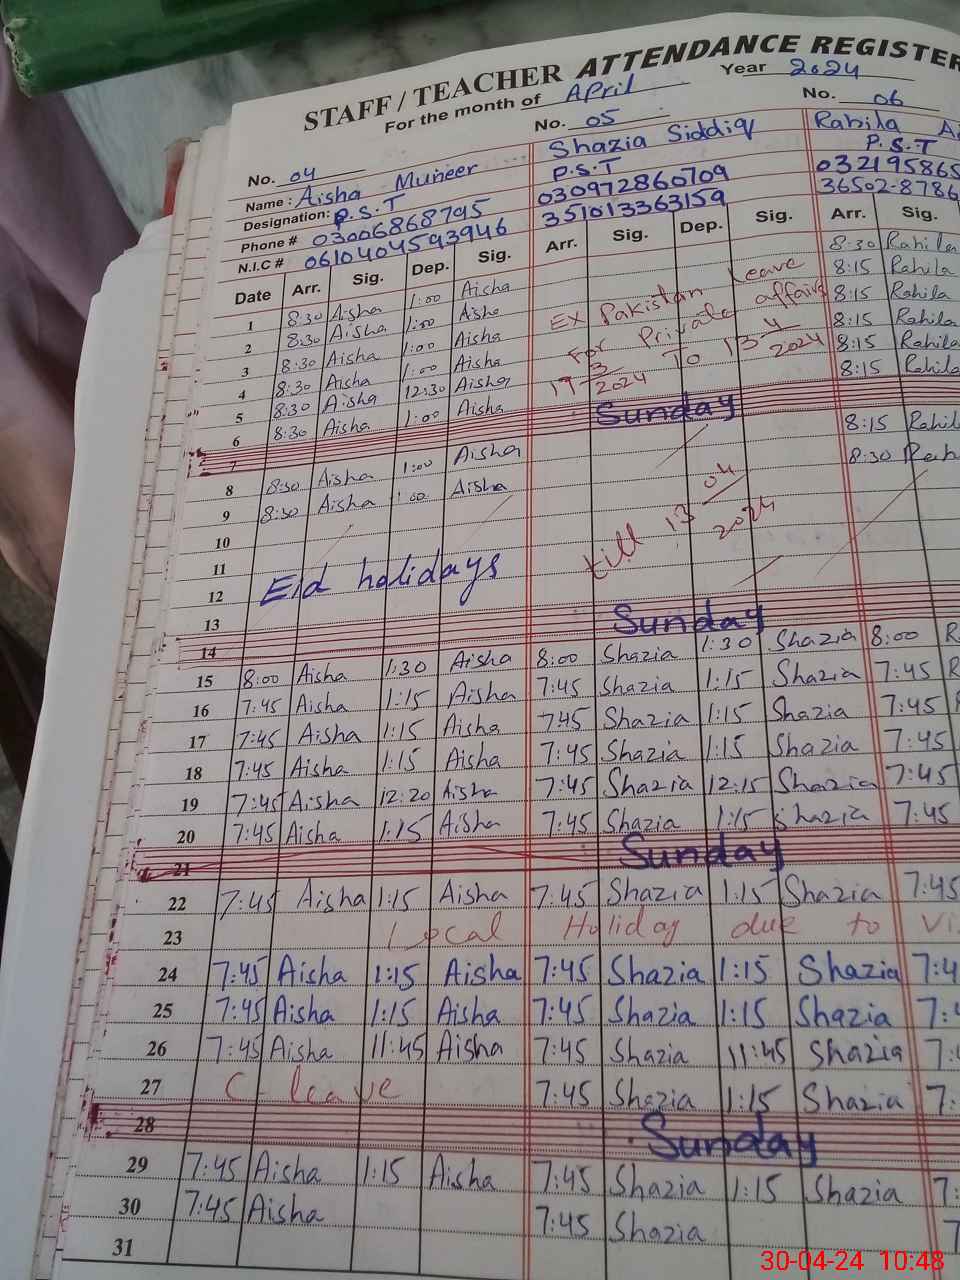 STAFF / TEACHER ATTENDANCE REGISTER
For the month of April Year 2024
No. 04 No. 05 No. 06
Name : Aisha Muneer Shazia Siddiq Rahila
Designation: P.S.T P.S.T P.S.T
Phone # 03006868795 030972860709 032195865
N.I.C # 0610404593946 351013363159 36502-8786
Date Arr. Sig. Dep. Sig. Arr. Sig. Dep. Sig. Arr. Sig.
1 8:30 Aisha 1:00 Aisha 8:30 Rahila
2 8:30 Aisha 1:00 Aisha Ex Pakistan Leave 8:15 Rahila
3 8:30 Aisha 1:00 Aisha For Private affairs 8:15 Rahila
4 8:30 Aisha 1:00 Aisha 17-3/2024 To 13-4/2024 8:15 Rahila
5 8:30 Aisha 12:30 Aisha 8:15 Rahila
6 8:30 Aisha 1:00 Aisha 8:15 Rahila
7 Sunday
8 8:30 Aisha 1:00 Aisha 8:15 Rahil
9 8:30 Aisha 1:00 Aisha 8:30 Rah
10
11 till 13 04/2024
12 Eid holidays
13
14 Sunday
15 8:00 Aisha 1:30 Aisha 8:00 Shazia 1:30 Shazia 8:00 R
16 7:45 Aisha 1:15 Aisha 7:45 Shazia 1:15 Shazia 7:45 R
17 7:45 Aisha 1:15 Aisha 745 Shazia 1:15 Shazia 7:45
18 7:45 Aisha 1:15 Aisha 7:45 Shazia 1:15 Shazia 7:45
19 7:45 Aisha 12:20 Aisha 7:45 Shazia 12:15 Shazia 7:45
20 7:45 Aisha 1:15 Aisha 7:45 Shazia 1:15 Shazia 7:45
21 Sunday
22 7:45 Aisha 1:15 Aisha 7:45 Shazia 1:15 Shazia 7:45
23 Local Holiday due to Vi
24 7:45 Aisha 1:15 Aisha 7:45 Shazia 1:15 Shazia 7:4
25 7:45 Aisha 1:15 Aisha 7:45 Shazia 1:15 Shazia 7:
26 7:45 Aisha 11:45 Aisha 7:45 Shazia 11:45 Shazia 7:
27 C leave 7:45 Shazia 1:15 Shazia 7:
28 Sunday
29 7:45 Aisha 1:15 Aisha 7:45 Shazia 1:15 Shazia 7:
30 7:45 Aisha 7:45 Shazia 7
31
30-04-24 10:48